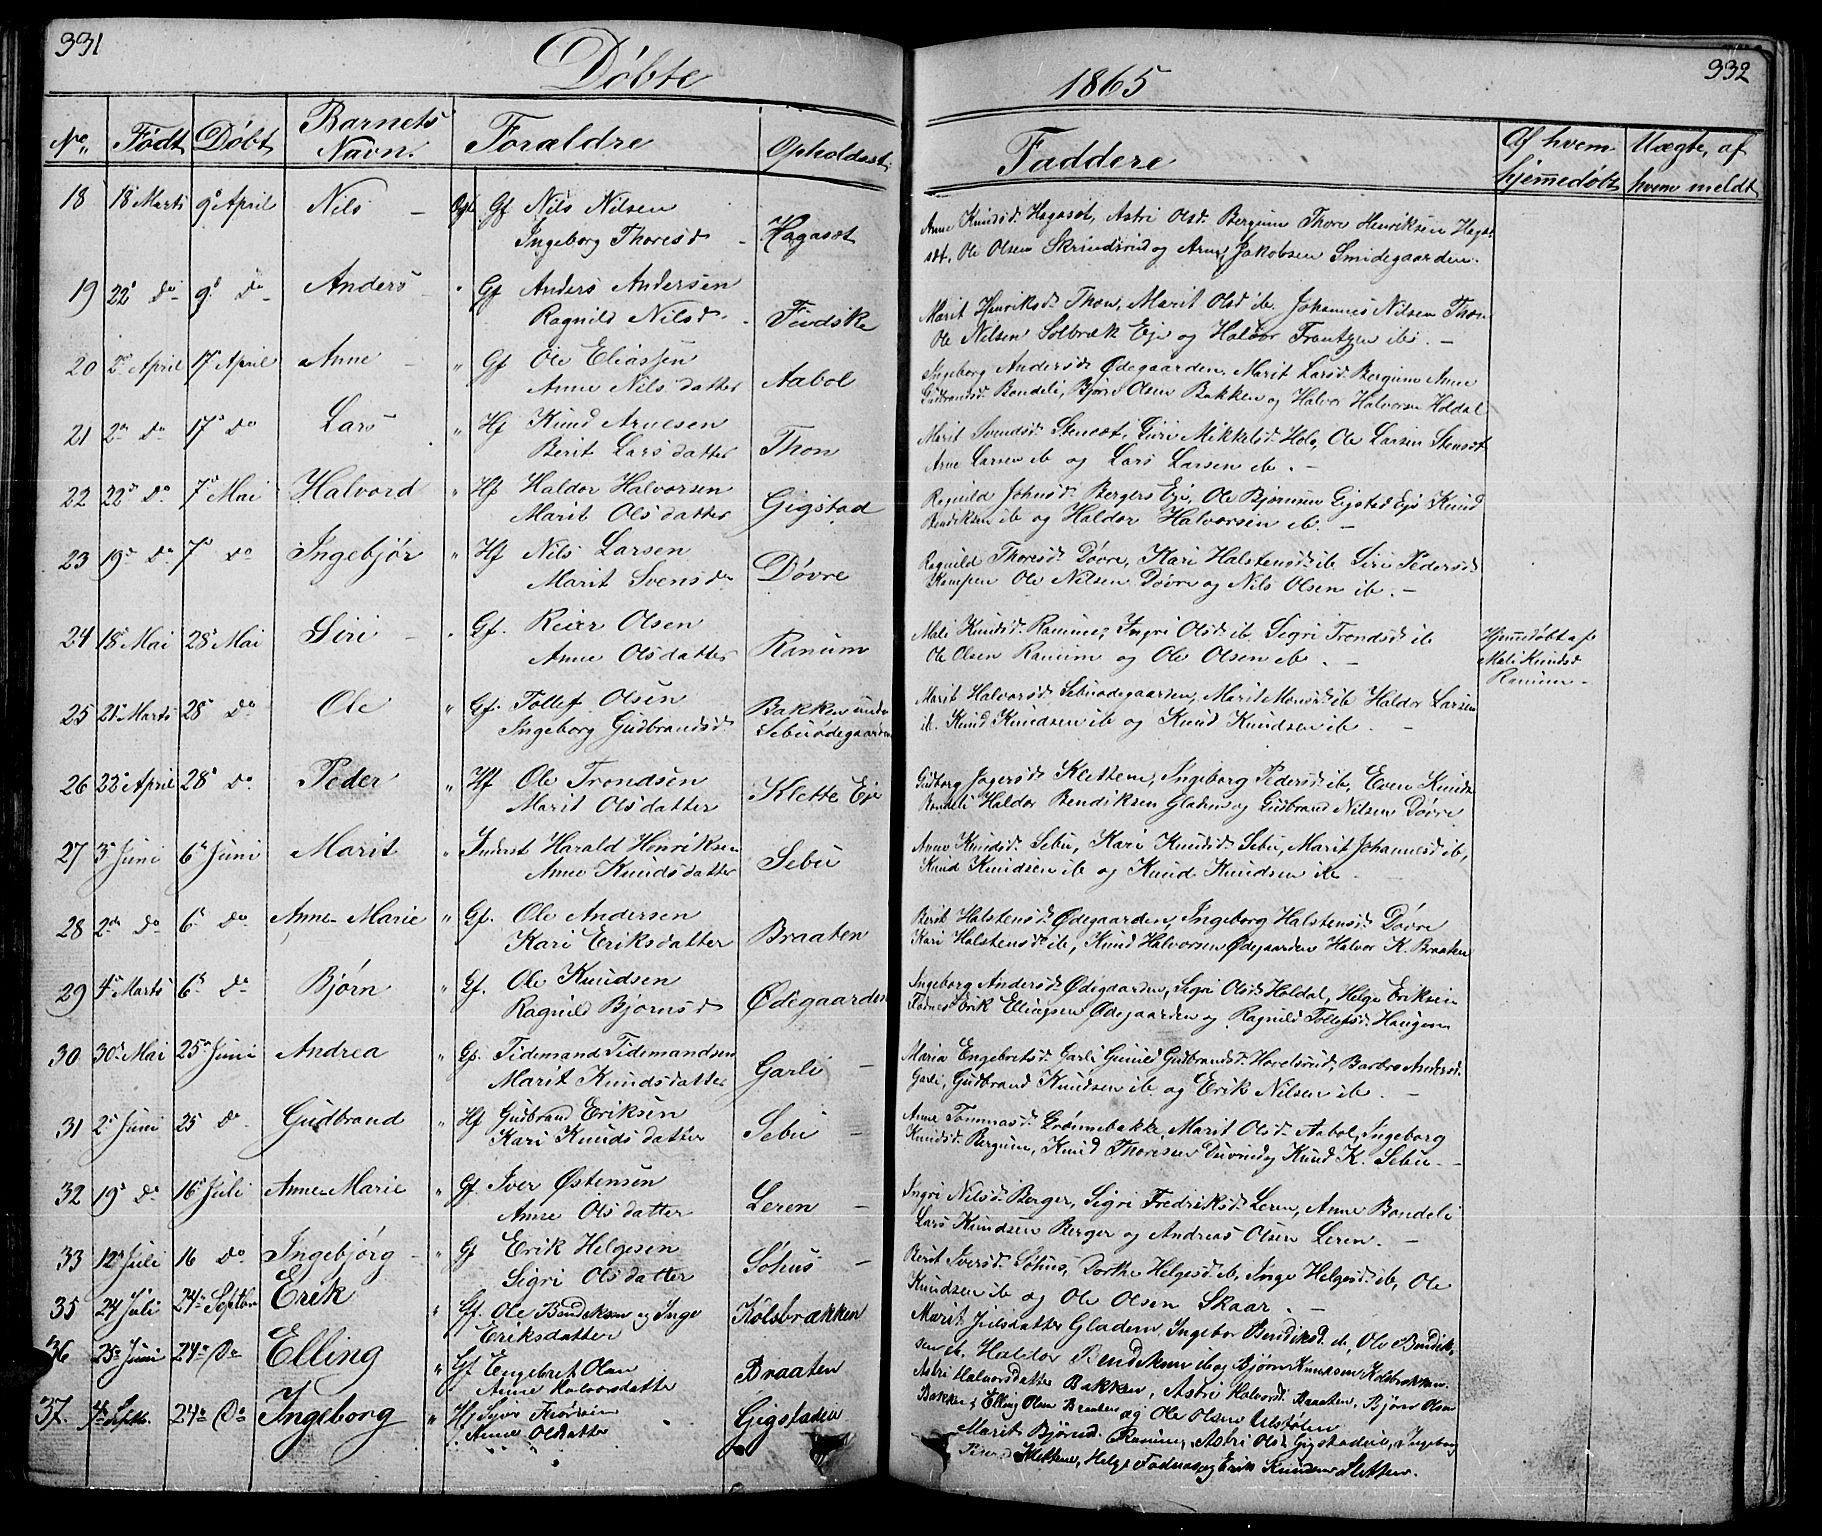 331
Døbte
No. Født Døbt Barnets Navn. Forældre Opholdsst
18 18 Marts 9 April Nils Gf Nils Nilsen Hagaset
Ingeborg Thoresd
19 22 Do 9 Do Anders " Gf Anders Andersen Findske
Ragnild Nilsd.
20 2 April 17 April Anne " Gf Ole Eliassen Aabol
Anne Nilsdatter
21 2 Do 17 Do Lars " Hf Knud Arnesen Thon
Berit Larsdatter
22 22 Do 7 Mai Halvord " Hf Haldor Halvorsen Gigstad
Marit Olsdatter
23 19 Do 7 Do Ingebjør " Hf Nils Larsen Døvre
Marit Svensdr
24 18 Mai 28 Mai Siri " Gf. Reier Olsen Ranum
Anne Olsdatter
25 21 Marts 28 Do Ole " Gf. Tollef Olsen Bakken under
Ingeborg Gudbrandsd. Sebuødegaarden
26 22 April 28 Do Peder " Hf Ole Trondsen Klette Eje
Marit Olsdatter
27 3 Juni 6 Juni Marit " Inderst Harald Henriksen Sebu
Anne Knudsdatter
28 2 Do 6 Do Anne Marie " Gf. Ole Andersen Braaten
Kari Eriksdatter
29 4 Marts 6 Do Bjørn " Gf. Ole Knudsen Ødegaarden
Ragnild Bjørnsd
30 30 Mai 25 Juni Andrea " Gf. Tidemand Tidemandsen Garli
Marit Knudsdatter
31 2 Juni 25 Do Gudbrand " Hf Gudbrand Eriksen Sebu
Kari Knudsdatter
32 19 Do 16 Juli Anne Marie " Gf. Iver Østensen Leren
Anne Olsdatter
33 12 Juli 16 Do Ingebjørg " Gf Erik Helgesen Søhus
Sigri Olsdatter
35 24 Juli 24 Septbr Erik " Gf. Ole Bendiksen og Inge Kolsbrækken
Eriksdatter
36 25 Juni 24 Do Elling " Gf Engebret Olsen Braaten
Anne Halvorsdatter
37. 4 Septb. 24 Do Ingeborg " Hf Gigstaden
Anne Olsdatter
1865
332
Faddere Af hvem hjemmedøbt Uægte, af hvem meldt
Anne Knudsd. Hagaset, Astri Olsd. Bergum Thore Henriksen Haga-
set, Ole Olsen Skrindsrud og Arne Jakobsen Smidegaarden.
Marit Henriksd. Thon, Marit Olsd ib. Johannes Nilsen Thon
Ole Nilsen Solbræk Eje og Halvor Frantzen ib. —
Ingeborg Andersd Ødegaarden, Marit Larsd. Bergum Anne
Gudbrandsd. Bondeli, Bjørn Olsen Bakken og Halvor Halvorsen Holdal
Marit Svendsd. Stenset, Guri Mikkelsd. Hole, Ole Larsen Stenset
Arne Larsen ib og Lars Larsen ib. —
Ragnild Johnsd. Bergers Eje, Ole Bjørnsen Gigstad Eje Knud
Bendiksen ib og Haldor Halvorsen ib. —
Ragnild Thoresd. Døvre, Kari Halstensd. ib Siri Pedersd.
Kampen Ole Nilsen Døvre og Nils Olsen ib. —
Mali Knudsd. Ranum, Ingri Olsd. ib. Sigri Trondsd. ib Hjemmedøbt af
Ole Olsen Ranum og Ole Olsen ib. — Mali Knudsd
Ranum —
Marit Halvorsd. Sebuødegaarden, Marit Monsd. ib Haldor Larsen
ib. Knud Knudsen ib og Knud Knudsen ib. —
Gudborg Klettene, Ingeborg Pedersd. ib, Even Knuds
Bondeli Haldor Bendiksen Gladen og Gudbrand Nilsen Døvre
Anne Knudsd. Sebu, Kari Knudsd. Sebu, Marit Johannesd ib,
Knud Knudsen ib og Knud Knudsen ib. —
Berit Halstensd. Ødegaarden, Ingeborg Halstensd. Døvre
Kari Halstensd. ib, Knud Halvorsen Ødegaarden Halvor K. Braaten
Ingeborg Andersd. Ødegaarden, Sigri Olsd. Holdal, Helge Eriksen
Fodnes Erik Ellingsen Ødegaarden og Ragnild Tollefsd. Haugen
Maria Engebretsd. Garli Gunild Gudbrandsd. Hovelsrud, Barbro Andersd.
Garli, Gudbrand Knudsen ib og Erik Nilsen ib. —
Anne Tommasd. Grønnebakke, Marit Olsd. Aabol, Ingeborg
Knudsd. Bergum, Knud Thoresen Duvne og Knud K. Sebu. —
Ingri Nilsd. Berger, Sigri Fredriksd. Leren, Anne Bondeli
Lars Knudsen Berger og Andreas Olsen Leren. —
Berit Iversd. Søhus, Dorthe Helgesd. ib, Inge Helgesd. ib, Ole
Knudsen ib og Ole Olsen Skaar. —
Marit Juelsdatter Gladen, Ingebor Bendiksd. ib, Ole Bendik-
sen ib. Haldor Bendiksen ib og Bjørn Knudsen Kolsbrækken.
Astri Halvorsdatter Bakken, Astri Halvorsd. Braaten, Bjørn Olsen
Bakken, Elling Olsen Braaten og Ole Olsen Ulstølen
Marit Bjørnd. Ranum, Astri Olsd. Gigstaden, Ingeborg
Klettene, Helge Fodnes og Erik Knudsen Sletten.